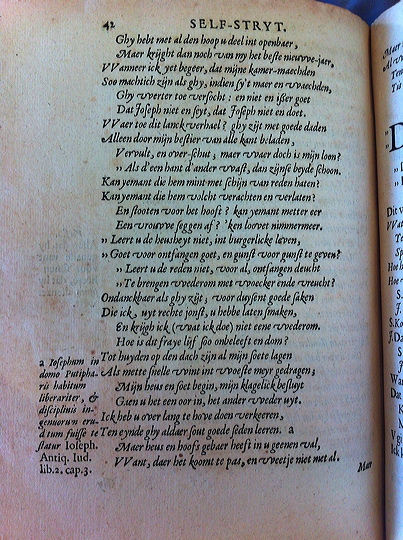 42 SELF-STRYT.
Ghy hebt met al den hoop u deel int openbaer,
Maer krijght dan noch van my het beste nieuwe-jaer,
VVanneer ick yet begeer, dat mijne kamer-maechden
Soo machtich zijn als ghy, indien sy't maer en waechden,
Ghy werter toe versocht: en niet en isser goet
Dat Joseph niet en seyt, dat Joseph niet en doet.
VVaer toe dit lanck verhael? ghy zijt met goede daden
Alleen door mijn bestier van alle kant beladen,
Vervult, en over-schut, maer waer doch is mijn loon?
„ Als d'een hant d'ander wast, dan zijnse beyde schoon.
Kan yemant die hem mint met schijn van reden haten?
Kan yemant die hem volcht verachten en verlaten?
En stooten voor het hooft? kan yemant metter eer
Een vrouwe seggen af? 'ken loovet nimmermeer.
„ Leert u de heusheyt niet, int burgerlicke leven,
„ Goet voor ontfangen goet, en gunst voor gunst te geven?
„ Leert u de reden niet, voor al, ontfangen deucht
„ Te brengen wederom met woecker ende vreucht?
Ondanckbaer als ghy zijt, voor duysent goede saken
Die ick, uyt rechte jonst, u hebbe laten smaken,
En krijgh ick (wat ick doe) niet eene wederom.
Hoe is dit fraye lijf soo onbeleeft en dom?
Tot huyden op den dach zijn al mijn soete lagen
Als mette snelle wint int woeste meyr gedragen;
Mijn heus en soet begin, mijn klagelick besluyt
Gaen u het een oor in, het ander weder uyt.
Ick heb u over lang te hove doen verkeeren,
Ten eynde ghy aldaer sout goede seden leeren. a
Maer heus en hoofs gebaer heeft in u geenen val,
VVant, daer het koomt te pas, en weetje niet met al.
Maer
a Iosephum in
domo Putipha-
ris habitum
liberariter, &
disciplinis in-
genuorum eru-
ditum fuisse te-
statur Ioseph.
Antiq. Iud.
lib.2. cap.3.